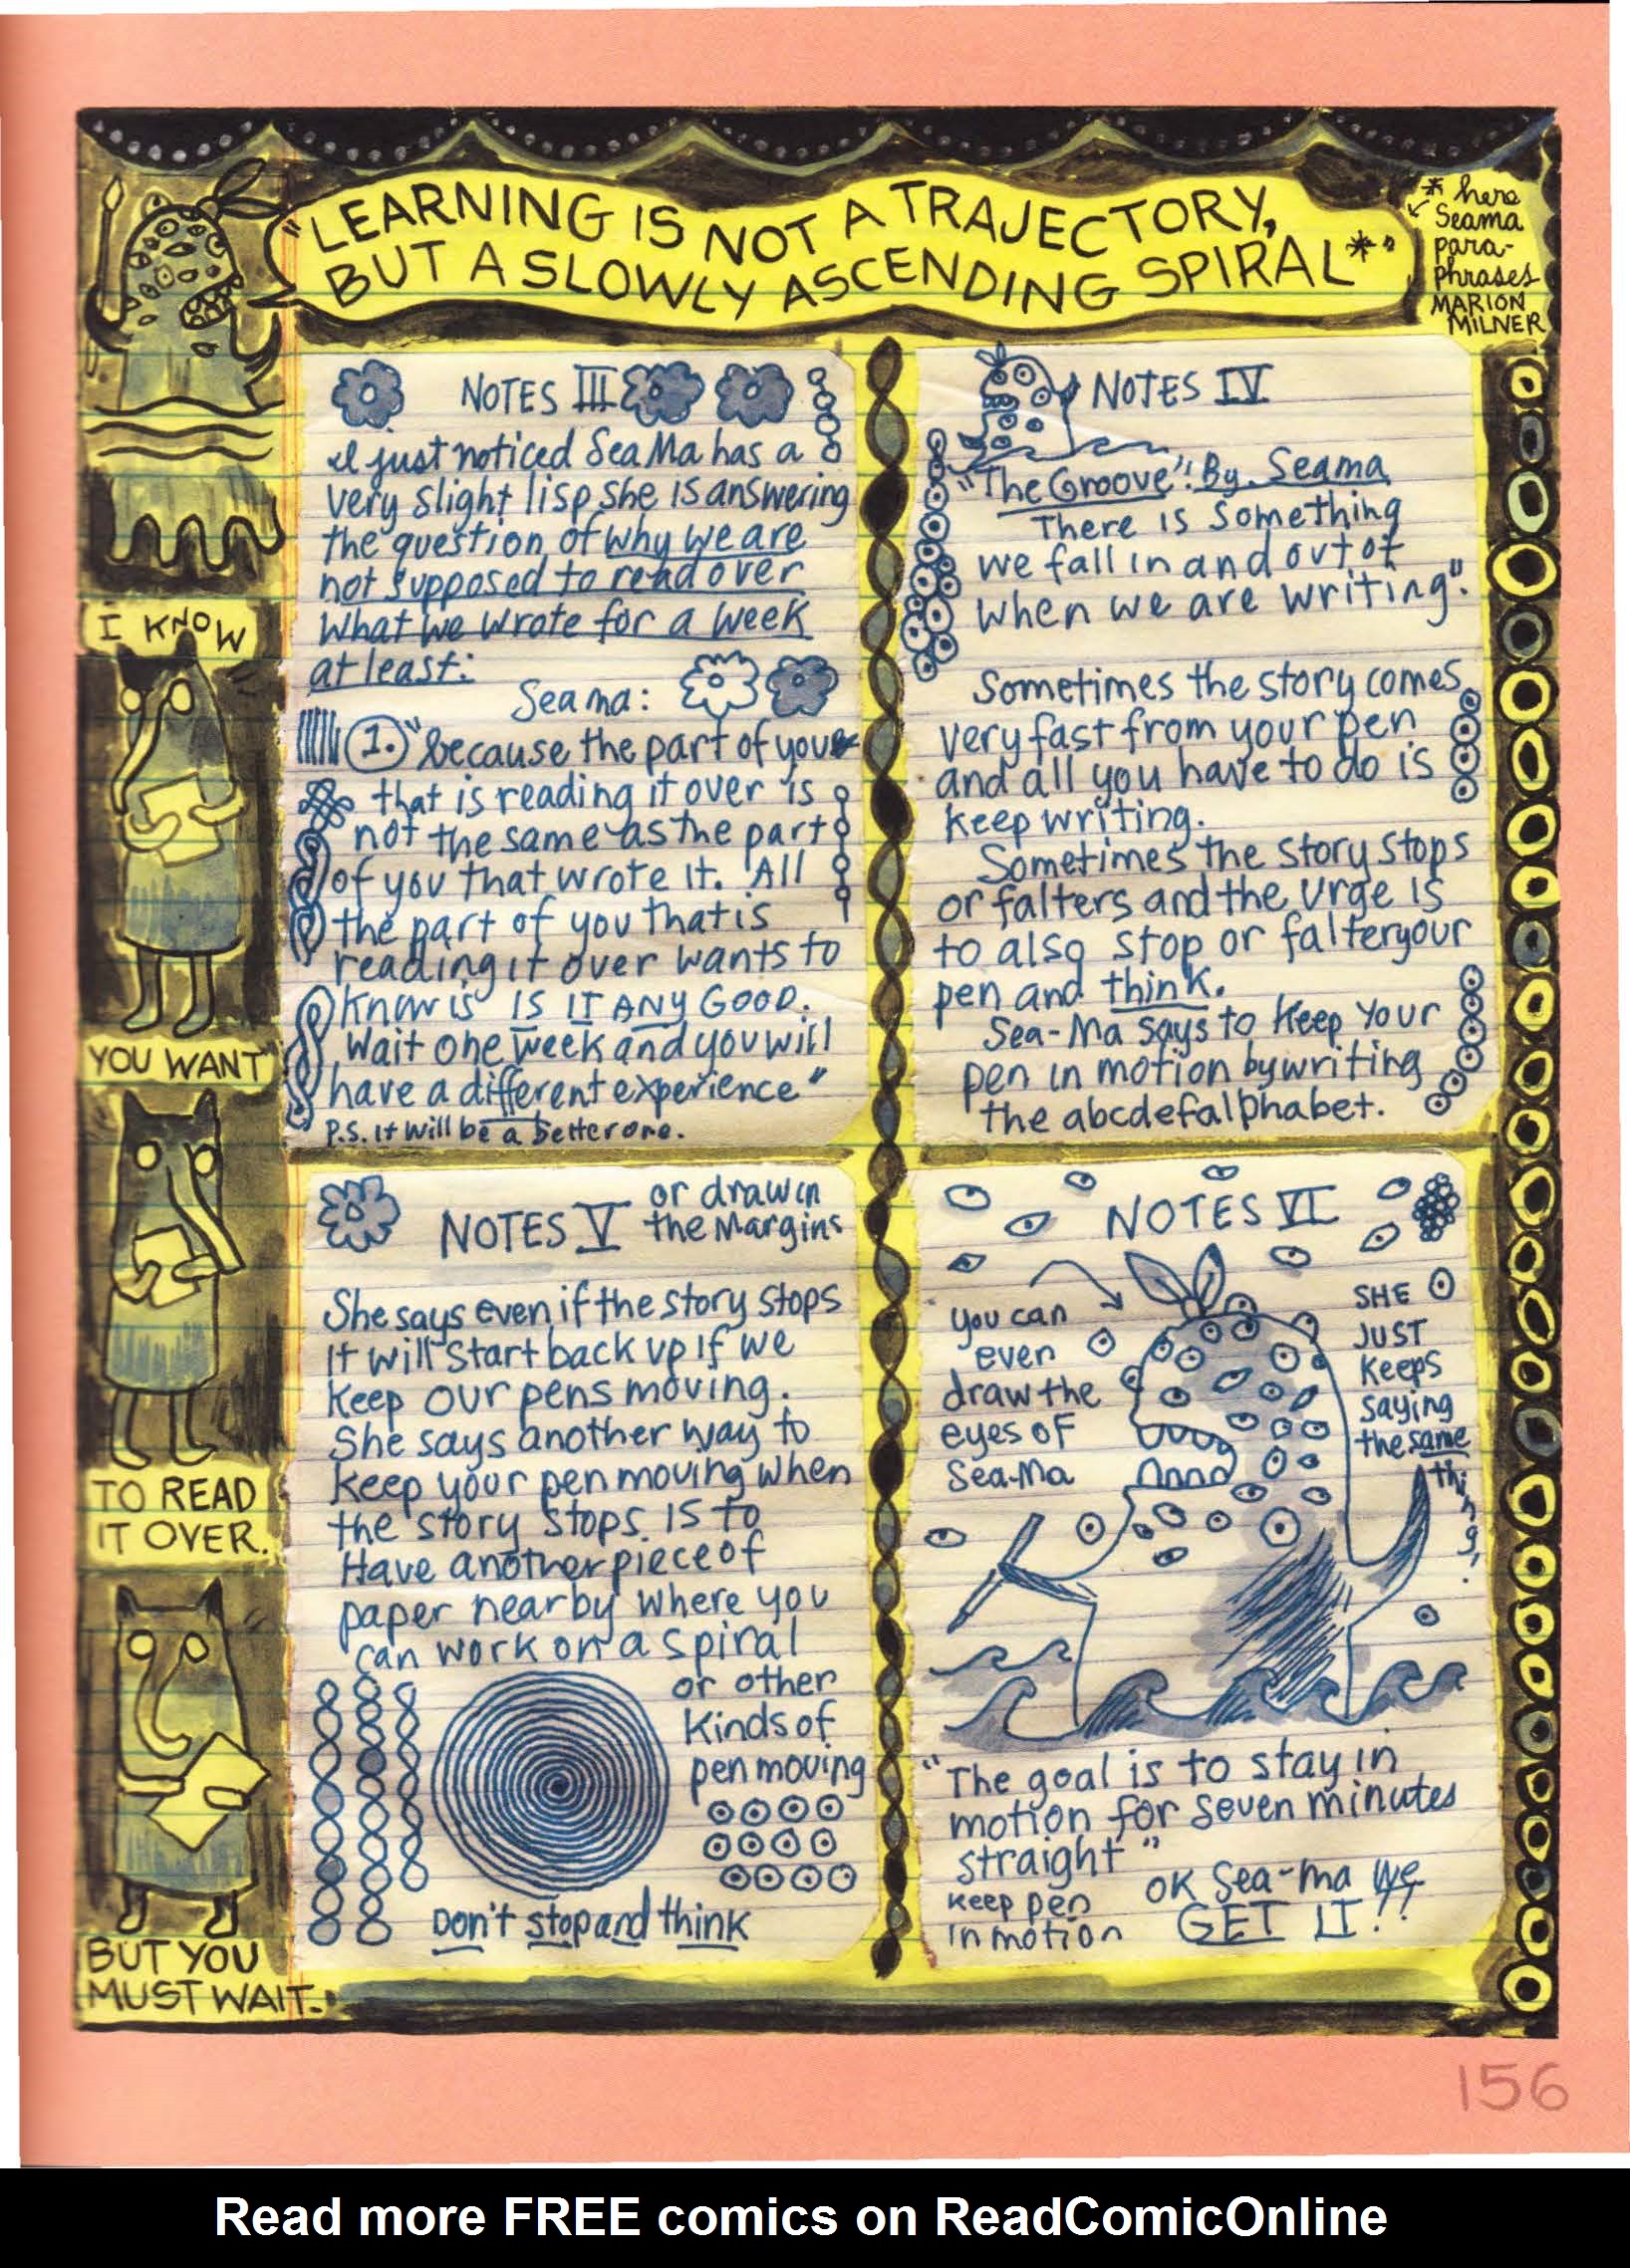 "LEARNING IS NOT A TRAJECTORY,
BUT A SLOWLY ASCENDING SPIRAL*"
* here
Seama
para-
phrases
MARION
MILNER
I KNOW
YOU WANT
TO READ
IT OVER.
BUT YOU
MUST WAIT.
NOTES III
I just noticed SeaMa has a
very slight lisp she is answering
the question of why we are
not supposed to read over
what we wrote for a week
at least:
Seama:
1. "because the part of you
that is reading it over is
not the same as the part
of you that wrote it. All
the part of you that is
reading it over wants to
know is IS IT ANY GOOD.
Wait one week and you will
have a different experience"
P.S. it will be a better one.
NOTES IV
"The Groove": By. Seama
There is something
we fall in and out of
when we are writing."
Sometimes the story comes
very fast from your pen
and all you have to do is
keep writing.
Sometimes the story stops
or falters and the urge is
to also stop or falter your
pen and think.
Sea-Ma says to keep your
pen in motion by writing
the abcdefalphabet.
NOTES V
or draw in
the Margins
She says even if the story stops
it will start back up if we
keep our pens moving.
She says another way to
keep your pen moving when
the story stops is to
Have another piece of
paper nearby where you
can work on a spiral
or other
kinds of
pen moving
Don't stop and think
NOTES VI
you can
even
draw the
eyes of
Sea-Ma
SHE
JUST
keeps
saying
the same
thing.
"The goal is to stay in
motion for seven minutes
straight"
keep pen
in motion
OK Sea-ma we
GET IT!!
156
Read more FREE comics on ReadComicOnline